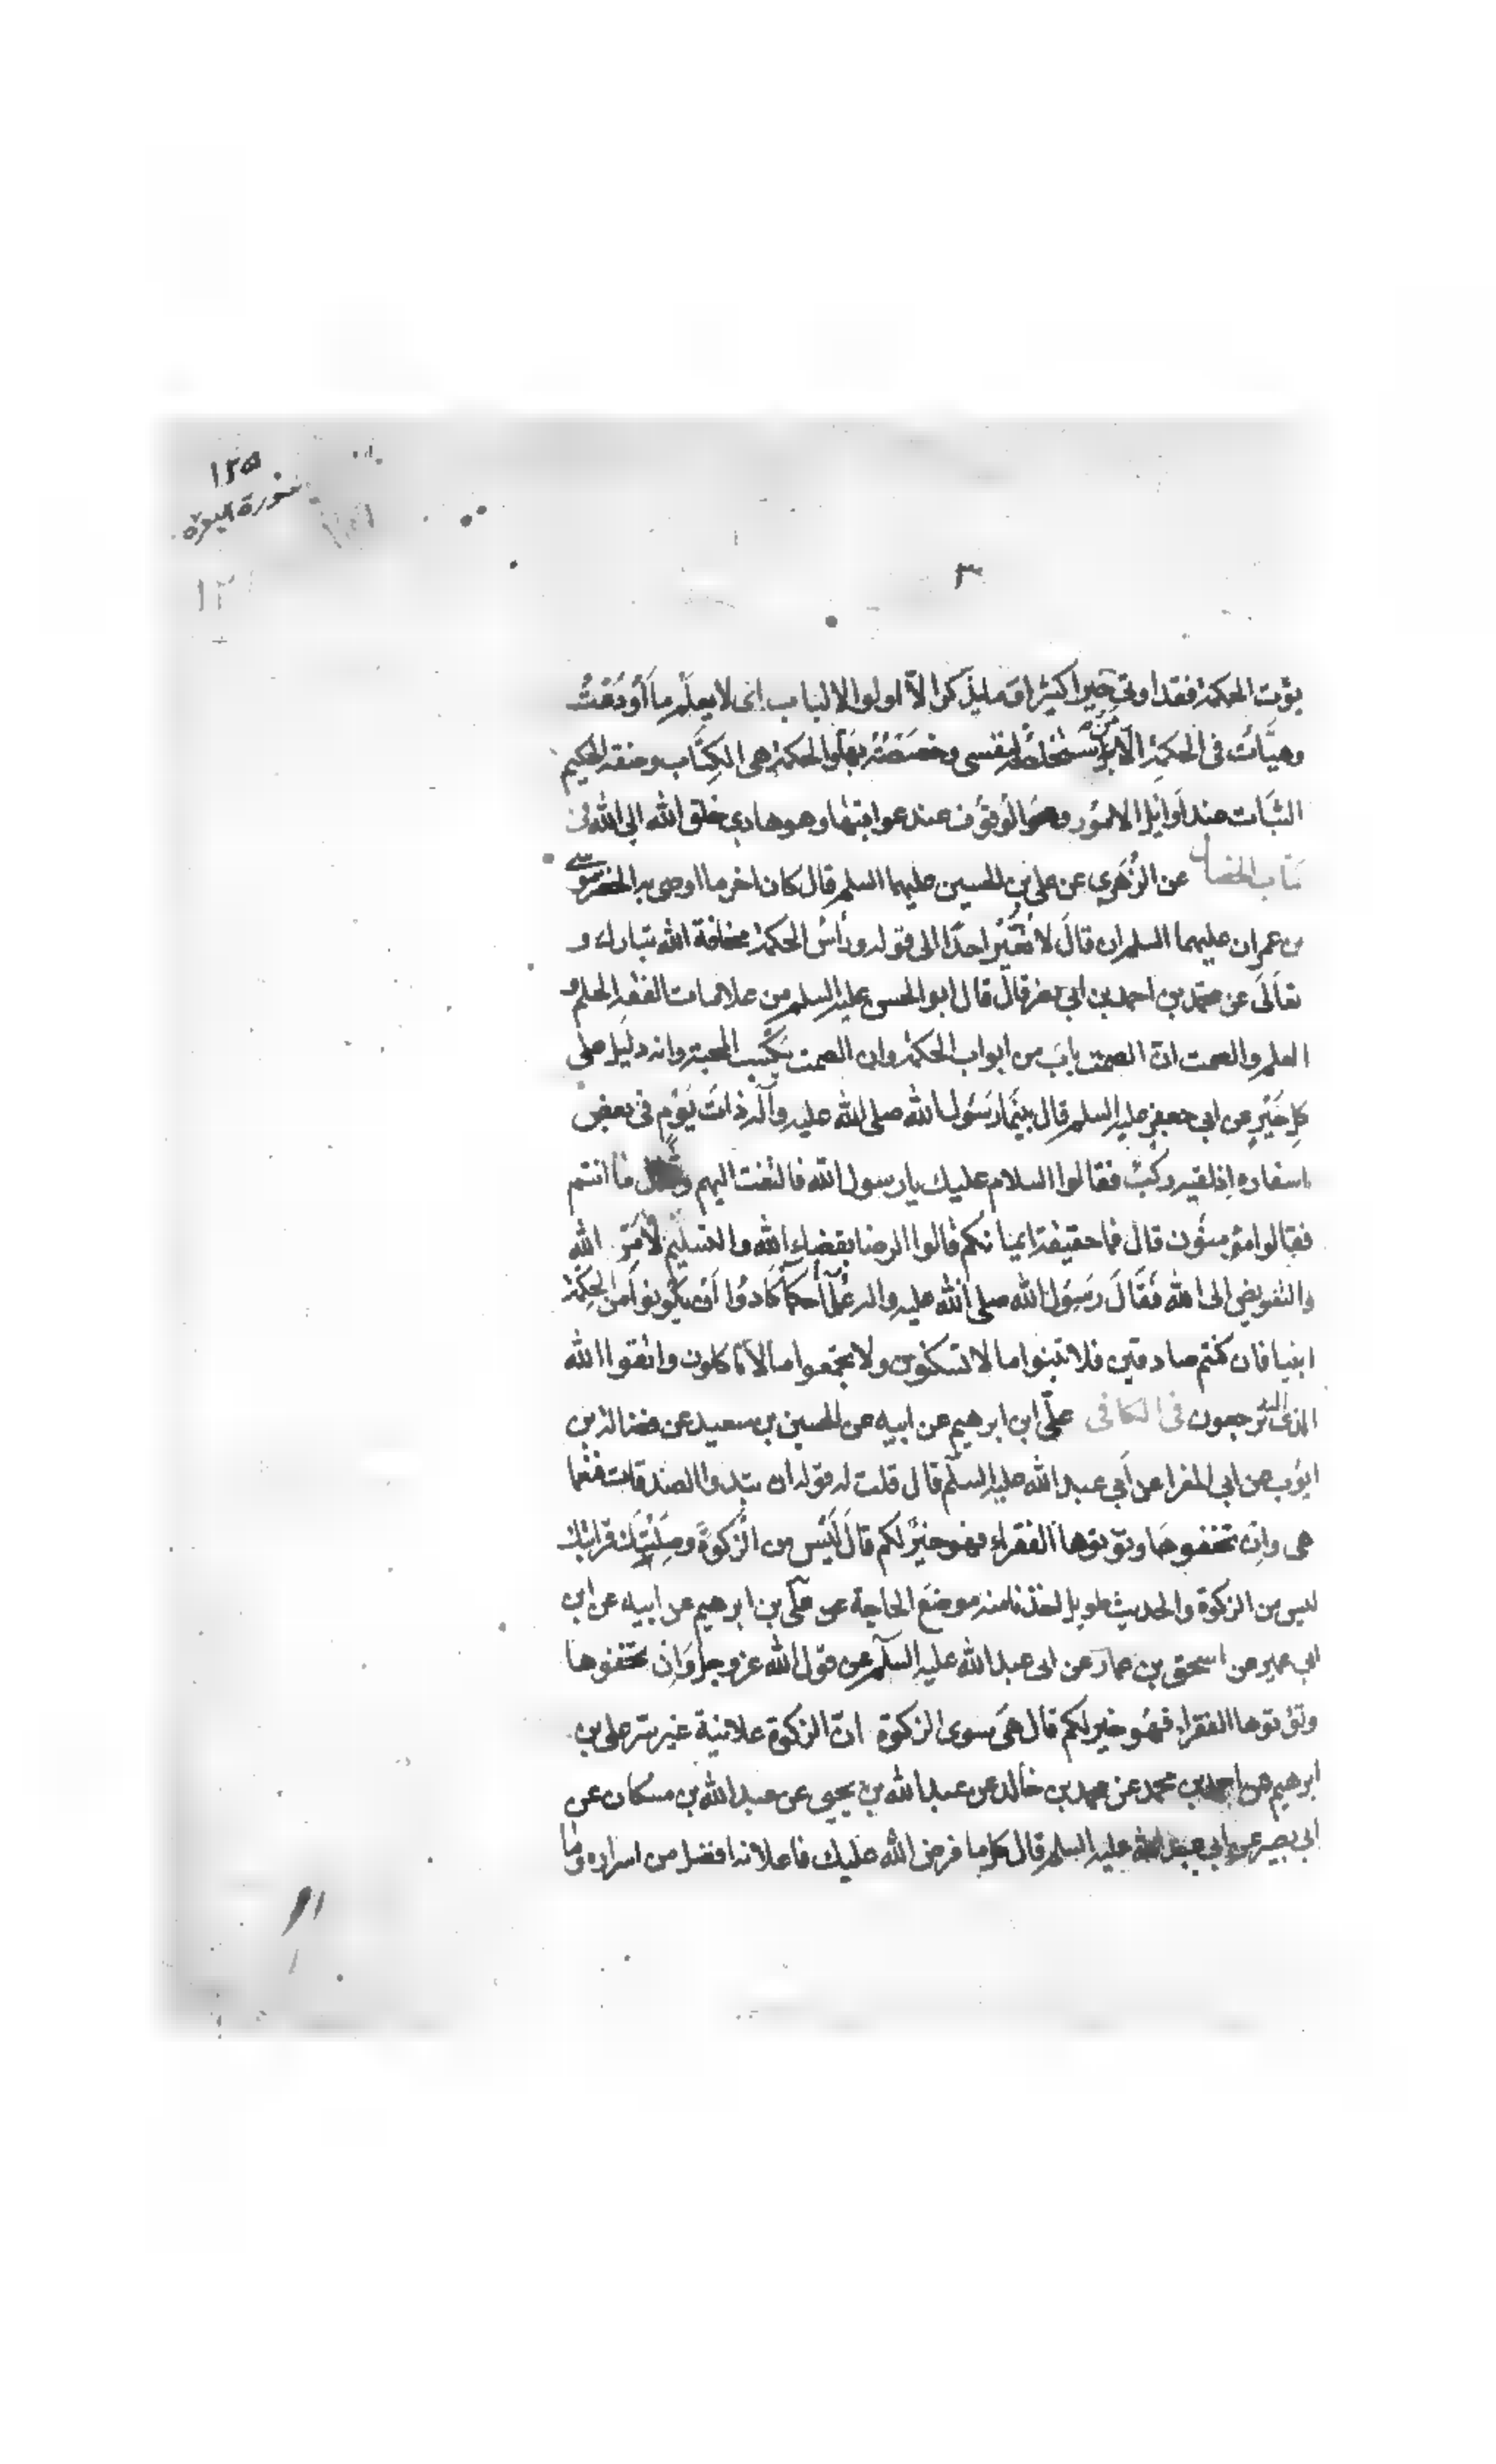 ١٢٥
سورة البقرة
١٢
٣
يؤت الحكمة فقد اوتي خيرا كثيرا وما يذكر الا اولوا الالباب اى لا يعلم ما أودعت
وهيّأت في الحكمة الا من استخلصته لنفسى وخصصته بها والحكمة هى الكتاب وصفة الحكيم
الثبات عند اوائل الامور والوقوف عند عواقبها وهو هادي خلق الله الى الله في
كتاب الخصال عن الزهري عن علي بن الحسين عليهما السلم قال كان اخر ما اوصى به الخضر موسى
بن عمران عليهما السلم ان قال لا تعيّر احدا الى قوله ورأس الحكمة مخافة الله تبارك و
تعالى عن محمد بن احمد بن ابى نصر قال قال ابو الحسن عليه السلم من علامات الفقه الحلم و
العلم والصمت انّ الصمت باب من ابواب الحكمة وان الصمت يكسب المحبة وانه دليل على
كل خير عن ابى جعفر عليه السلم قال بينما رسول الله صلى الله عليه وآله ذات يوم فى بعض
اسفاره إذ لقيه ركب فقالوا السلام عليك يا رسول الله فالتفت اليهم وقال ما انتم
فقالوا مؤمنون قال فما حقيقة ايمانكم قالوا الرضا بقضاء الله والتسليم لأمر الله
والتفويض الى الله فقال رسول الله صلى الله عليه واله علماء حكماء كادوا أن يكونوا من الحكمة
انبيا فان كنتم صادقين فلا تبنوا ما لا تسكنون ولا تجمعوا ما لا تأكلون واتقوا الله
الذى اليه ترجعون فى الكافى علىّ ابن ابرهيم عن ابيه عن الحسين بن سعيد عن فضالة بن
ايوب عن ابى المغرا عن أبي عبد الله عليه السلم قال قلت له قوله ان تبدوا الصدقات فنعما
هى وإن تخفوها وتؤتوها الفقراء فهو خير لكم قال ليس من الزكوة وصلتك قرابتك
ليس من الزكوة والحديث طويل اخذنا منه موضع الحاجة عن علىّ بن ابرهيم عن ابيه عن ابن
ابى عمير عن اسحق بن عمار عن ابى عبد الله عليه السلم عن قول الله عز وجل وان تخفوها
وتؤتوها الفقراء فهو خير لكم قال هى سوى الزكوة انّ الزكوة علانية غير سر على بن
ابرهيم عن احمد بن محمد عن محمد بن خالد عن عبد الله بن يحيى عن عبد الله بن مسكان عن
ابى بصير عن ابى عبد الله عليه السلم قال كل ما فرض الله عليك فاعلانه افضل من اسراره وما